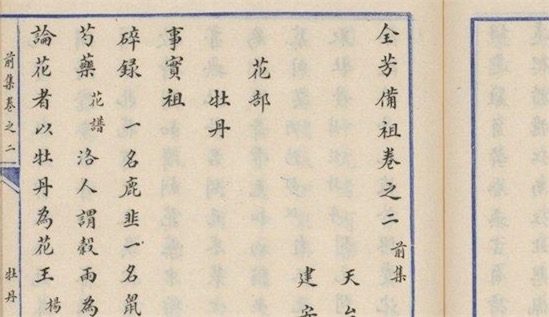 全芳備祖卷之二 前集
天台
建安
花部
牡丹
事實祖
碎録 一名鹿韭一名鼠
芍藥 花譜 洛人謂穀雨為
論花者以牡丹為花王 楊
前集卷之二
牡丹